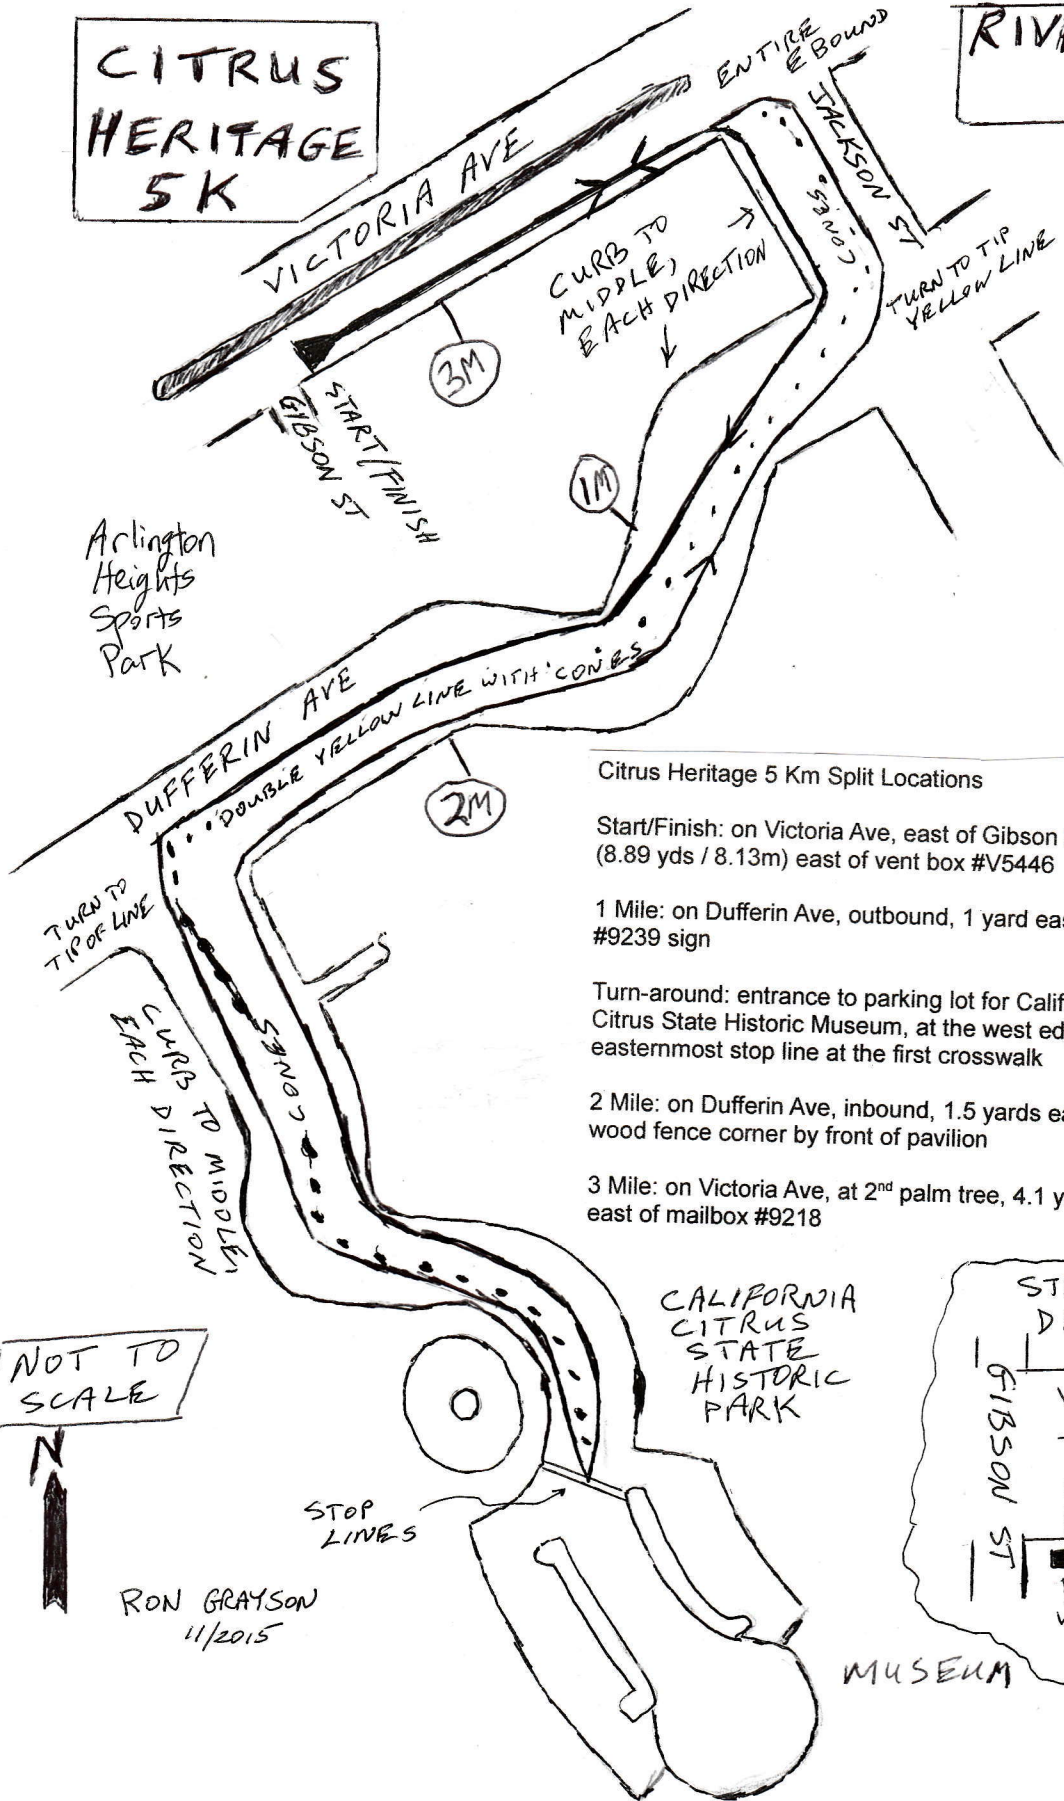 CITRUS
HERITAGE
5K
VICTORIA AVE
ENTIRE
EBOUND
JACKSON ST
CONES
TURN TO TIP
YELLOW LINE
CURB TO
MIDDLE,
EACH DIRECTION
3M
START/FINISH
GIBSON ST
1M
Arlington
Heights
Sports
Park
DUFFERIN AVE
DOUBLE YELLOW LINE WITH CONES
2M
TURN TO
TIP OF LINE
CURB TO MIDDLE,
EACH DIRECTION
CONES
Citrus Heritage 5 Km Split Locations
Start/Finish: on Victoria Ave, east of Gibson
(8.89 yds / 8.13m) east of vent box #V5446
1 Mile: on Dufferin Ave, outbound, 1 yard eas
#9239 sign
Turn-around: entrance to parking lot for Calif
Citrus State Historic Museum, at the west ed
easternmost stop line at the first crosswalk
2 Mile: on Dufferin Ave, inbound, 1.5 yards ea
wood fence corner by front of pavilion
3 Mile: on Victoria Ave, at 2nd palm tree, 4.1 y
east of mailbox #9218
CALIFORNIA
CITRUS
STATE
HISTORIC
PARK
NOT TO
SCALE
N
STOP
LINES
RON GRAYSON
11/2015
GIBSON ST
MUSEUM